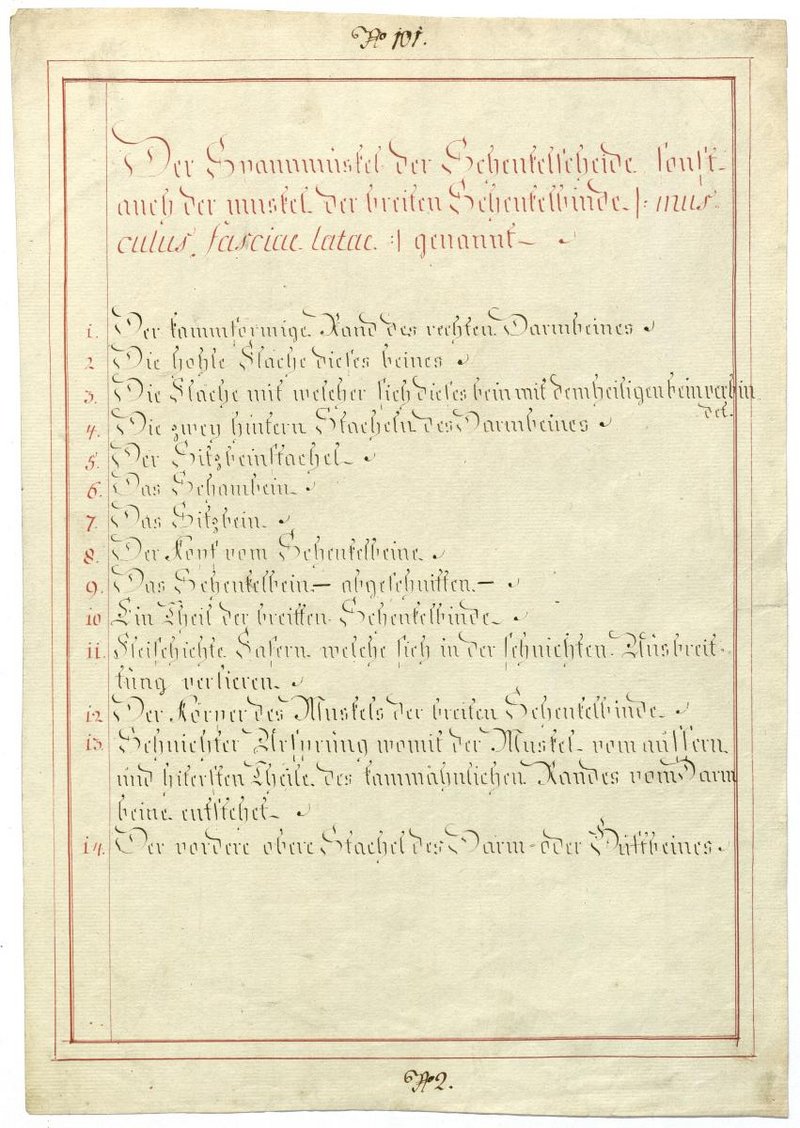 No 101.
Der Spannmuskel der Schenkelscheide sonst
auch der muskel der breiten Schenkelbinde |: mus
culus fasciae latae :| genannt
1. Der kammförmige Rand des rechten Darmbeines
2 Die hohle Flache dieses beines
3. Die Flache mit welcher sich dieses bein mit dem heiligen bein verbin
det.
4. Die zwey hintern Stacheln des Darmbeines
5. Der Sitzbeinstachel
6. Das Schambein
7. Das Sitzbein
8. Der Kopf vom Schenkelbeine
9. Das Schenkelbein – abgeschnitten. –
10 Ein Theil der breitten Schenkelbinde
11. Fleischichte Fasern welche sich in der sehnichten Ausbreit
tung verlieren
12 Der Körper des Muskels der breiten Schenkelbinde
13. Sehnichter Ursprung womit der Muskel vom aussern
und hitersten Theile des kammähnlichen Randes vom Darm
beine entstehet
14. Der vordere obere Stachel des Darm-oder Hüftbeines
No 2.